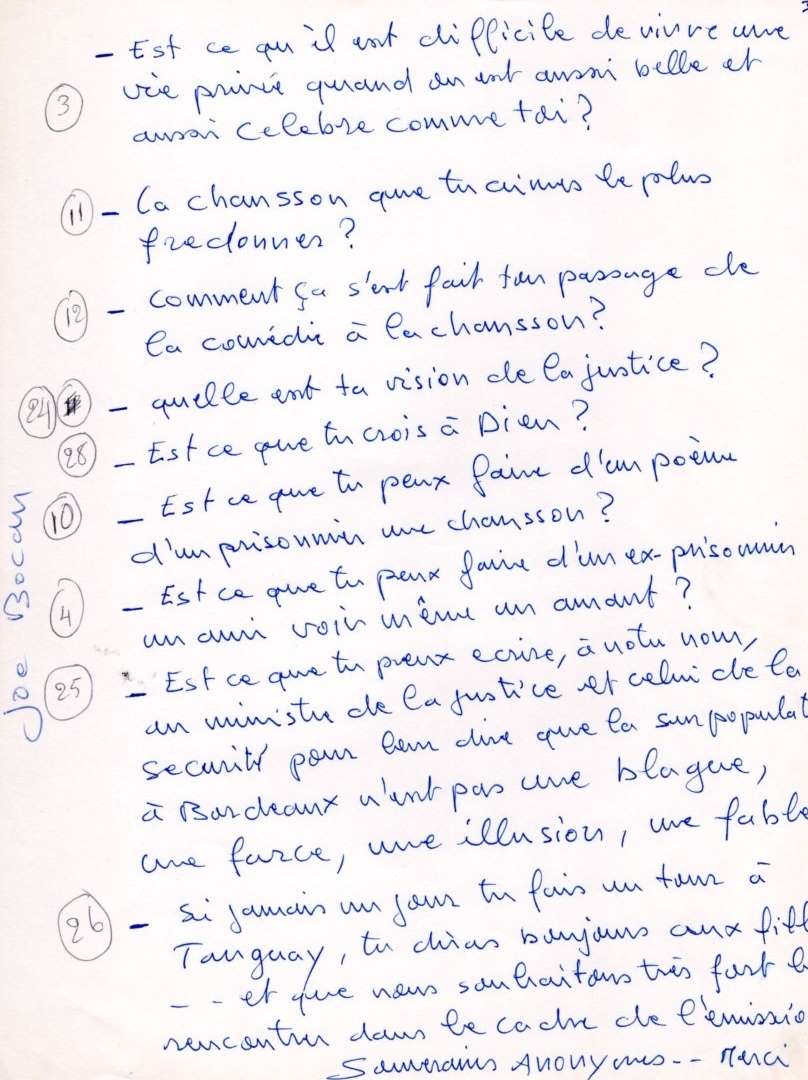 - Est ce qu'il est difficile de vivre une
③ vie privée quand on est aussi belle et
aussi celebre comme toi ?
⑪ - la chansson que tu aimes le plus
fredonner ?
⑫ - comment ça s'est fait ton passage de
la comédie à la chansson ?
㉔ - quelle est ta vision de la justice ?
㉘ - Est ce que tu crois à Dieu ?
⑩ - Est ce que tu peux faire d'un poème
d'un prisonnier une chansson ?
④ - Est ce que tu peux faire d'un ex-prisonnier
un ami voir même un amant ?
㉕ - Est ce que tu peux ecrire, à notre nom,
au ministre de la justice et celui de la
securité pour leur dire que la surpopulat
à Bordeaux n'est pas une blague,
une farce, une illusion, une fable
㉖ - si jamais un jour tu fais un tour à
Tanguay, tu diras bonjours aux fill
- - et que nous souhaitons très fort l
rencontrer dans le cadre de l'émissio
Souverains Anonymes - - Merci
Joe Bocan